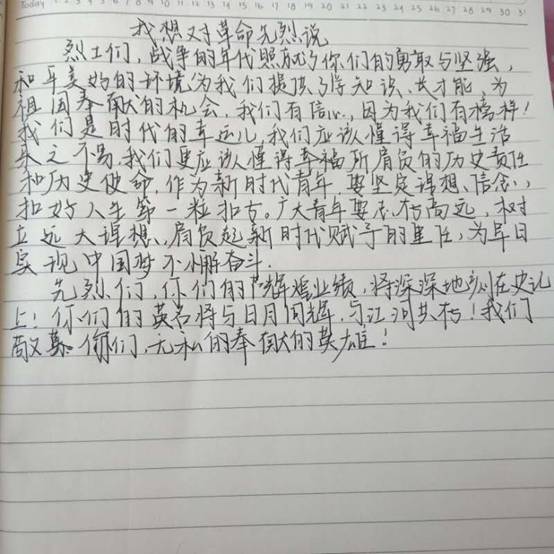 Today 1 2 3 4 5 6 7 8 9 10 11 12 13 14 15 16 17 18 19 20 21 22 23 24 25 26 27 28 29 30 31
我想对革命先烈说
烈士们,战争的年代照就了你们的勇敢与坚强,
和平美好的环境为我们提供了学知识、长才能,为
祖国奉献的机会,我们有信心,因为我们有榜样!
我们是时代的幸运儿,我们应该懂得幸福生活
来之不易,我们更应该懂得幸福所肩负的历史责任
和历史使命,作为新时代青年,要坚定理想、信念,
扣好人生第一粒扣古。广大青年要志存高远,树
立远大理想,肩负起新时代赋予的重任,为早日
实现中国梦不懈奋斗.
先烈们,你们的辉煌业绩,将深深地刻在史记
上!你们的英名将与日月同辉,与江河共存!我们
敬慕你们,无私的奉献的英雄!